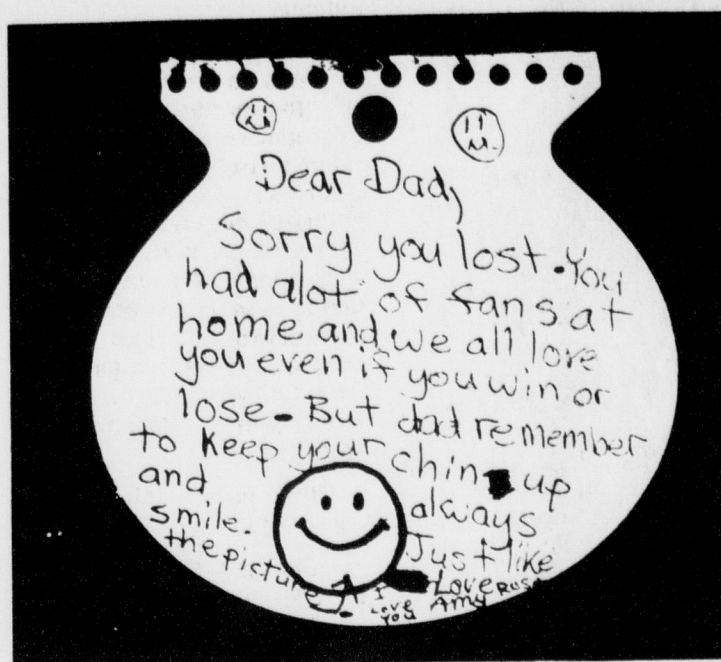 Dear Dad,
Sorry you lost. You
had alot of fans at
home and we all love
you even if you win or
lose. But dad remember
to keep your chin up
and always
smile. Just like
the picture Love
I Love You Amy